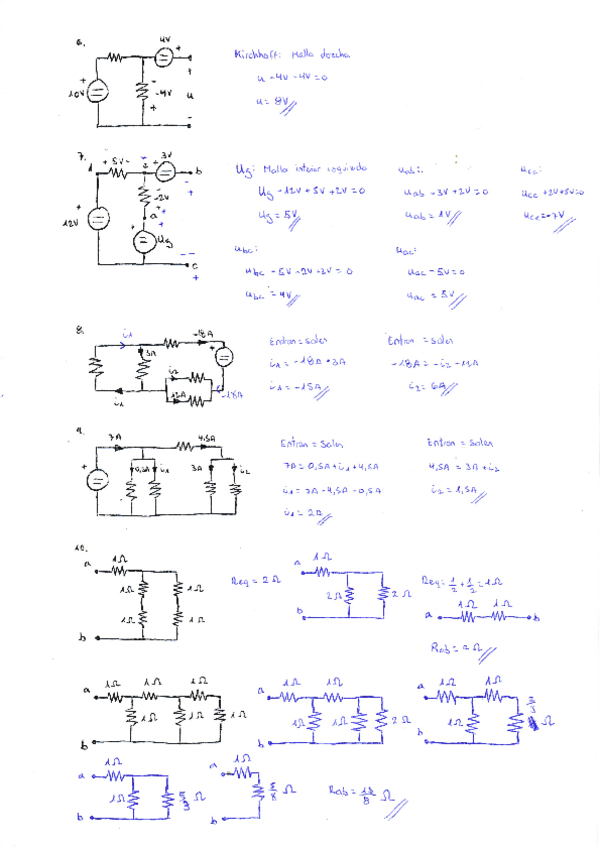 6.
4V
+
+
10V
-4V
u
+
-
Kirchhoff: Malla derecha
u -4V -4V=0
u= 8V
7.
1
+ 5V -
3V
b
-2V
a
12V
Ug
c
Ug: Malla inferior izquierda
Ug -12V +5V +2V =0
Ug= 5V
uab:
uab -3V +2V =0
uab= 1V
ubc:
ubc -5V -2V +3V = 0
ubc = 4V
uac:
uac -5V =0
uac = 5V
8.
i1
-18A
3A
i2
12A
-18A
i1
Entran = Salen
i1 = -18A + 3A
i1 = -15A
Entran = Salen
-18A = -i2 -12A
i2 = 6A
9.
7A
4,5A
0,5A
i1
3A
i2
Entran = Salen
7A = 0,5A + i1 + 4,5A
i1 = 7A -4,5A -0,5A
i1 = 2A
Entran = Salen
4,5A = 3A + i2
i2 = 1,5A
10.
a
1Ω
1Ω
1Ω
1Ω
1Ω
b
Req = 2Ω
a
1Ω
2Ω
2Ω
b
Req = 1/2 + 1/2 = 1Ω
1Ω
1Ω
a
b
Rab = 2Ω
a
1Ω
1Ω
1Ω
1Ω
1Ω
1Ω
b
a
1Ω
1Ω
1Ω
1Ω
2Ω
b
a
1Ω
1Ω
1Ω
Ω
b
a
1Ω
1Ω
5/3 Ω
b
a
1Ω
5/8 Ω
b
Rab = 13/8 Ω